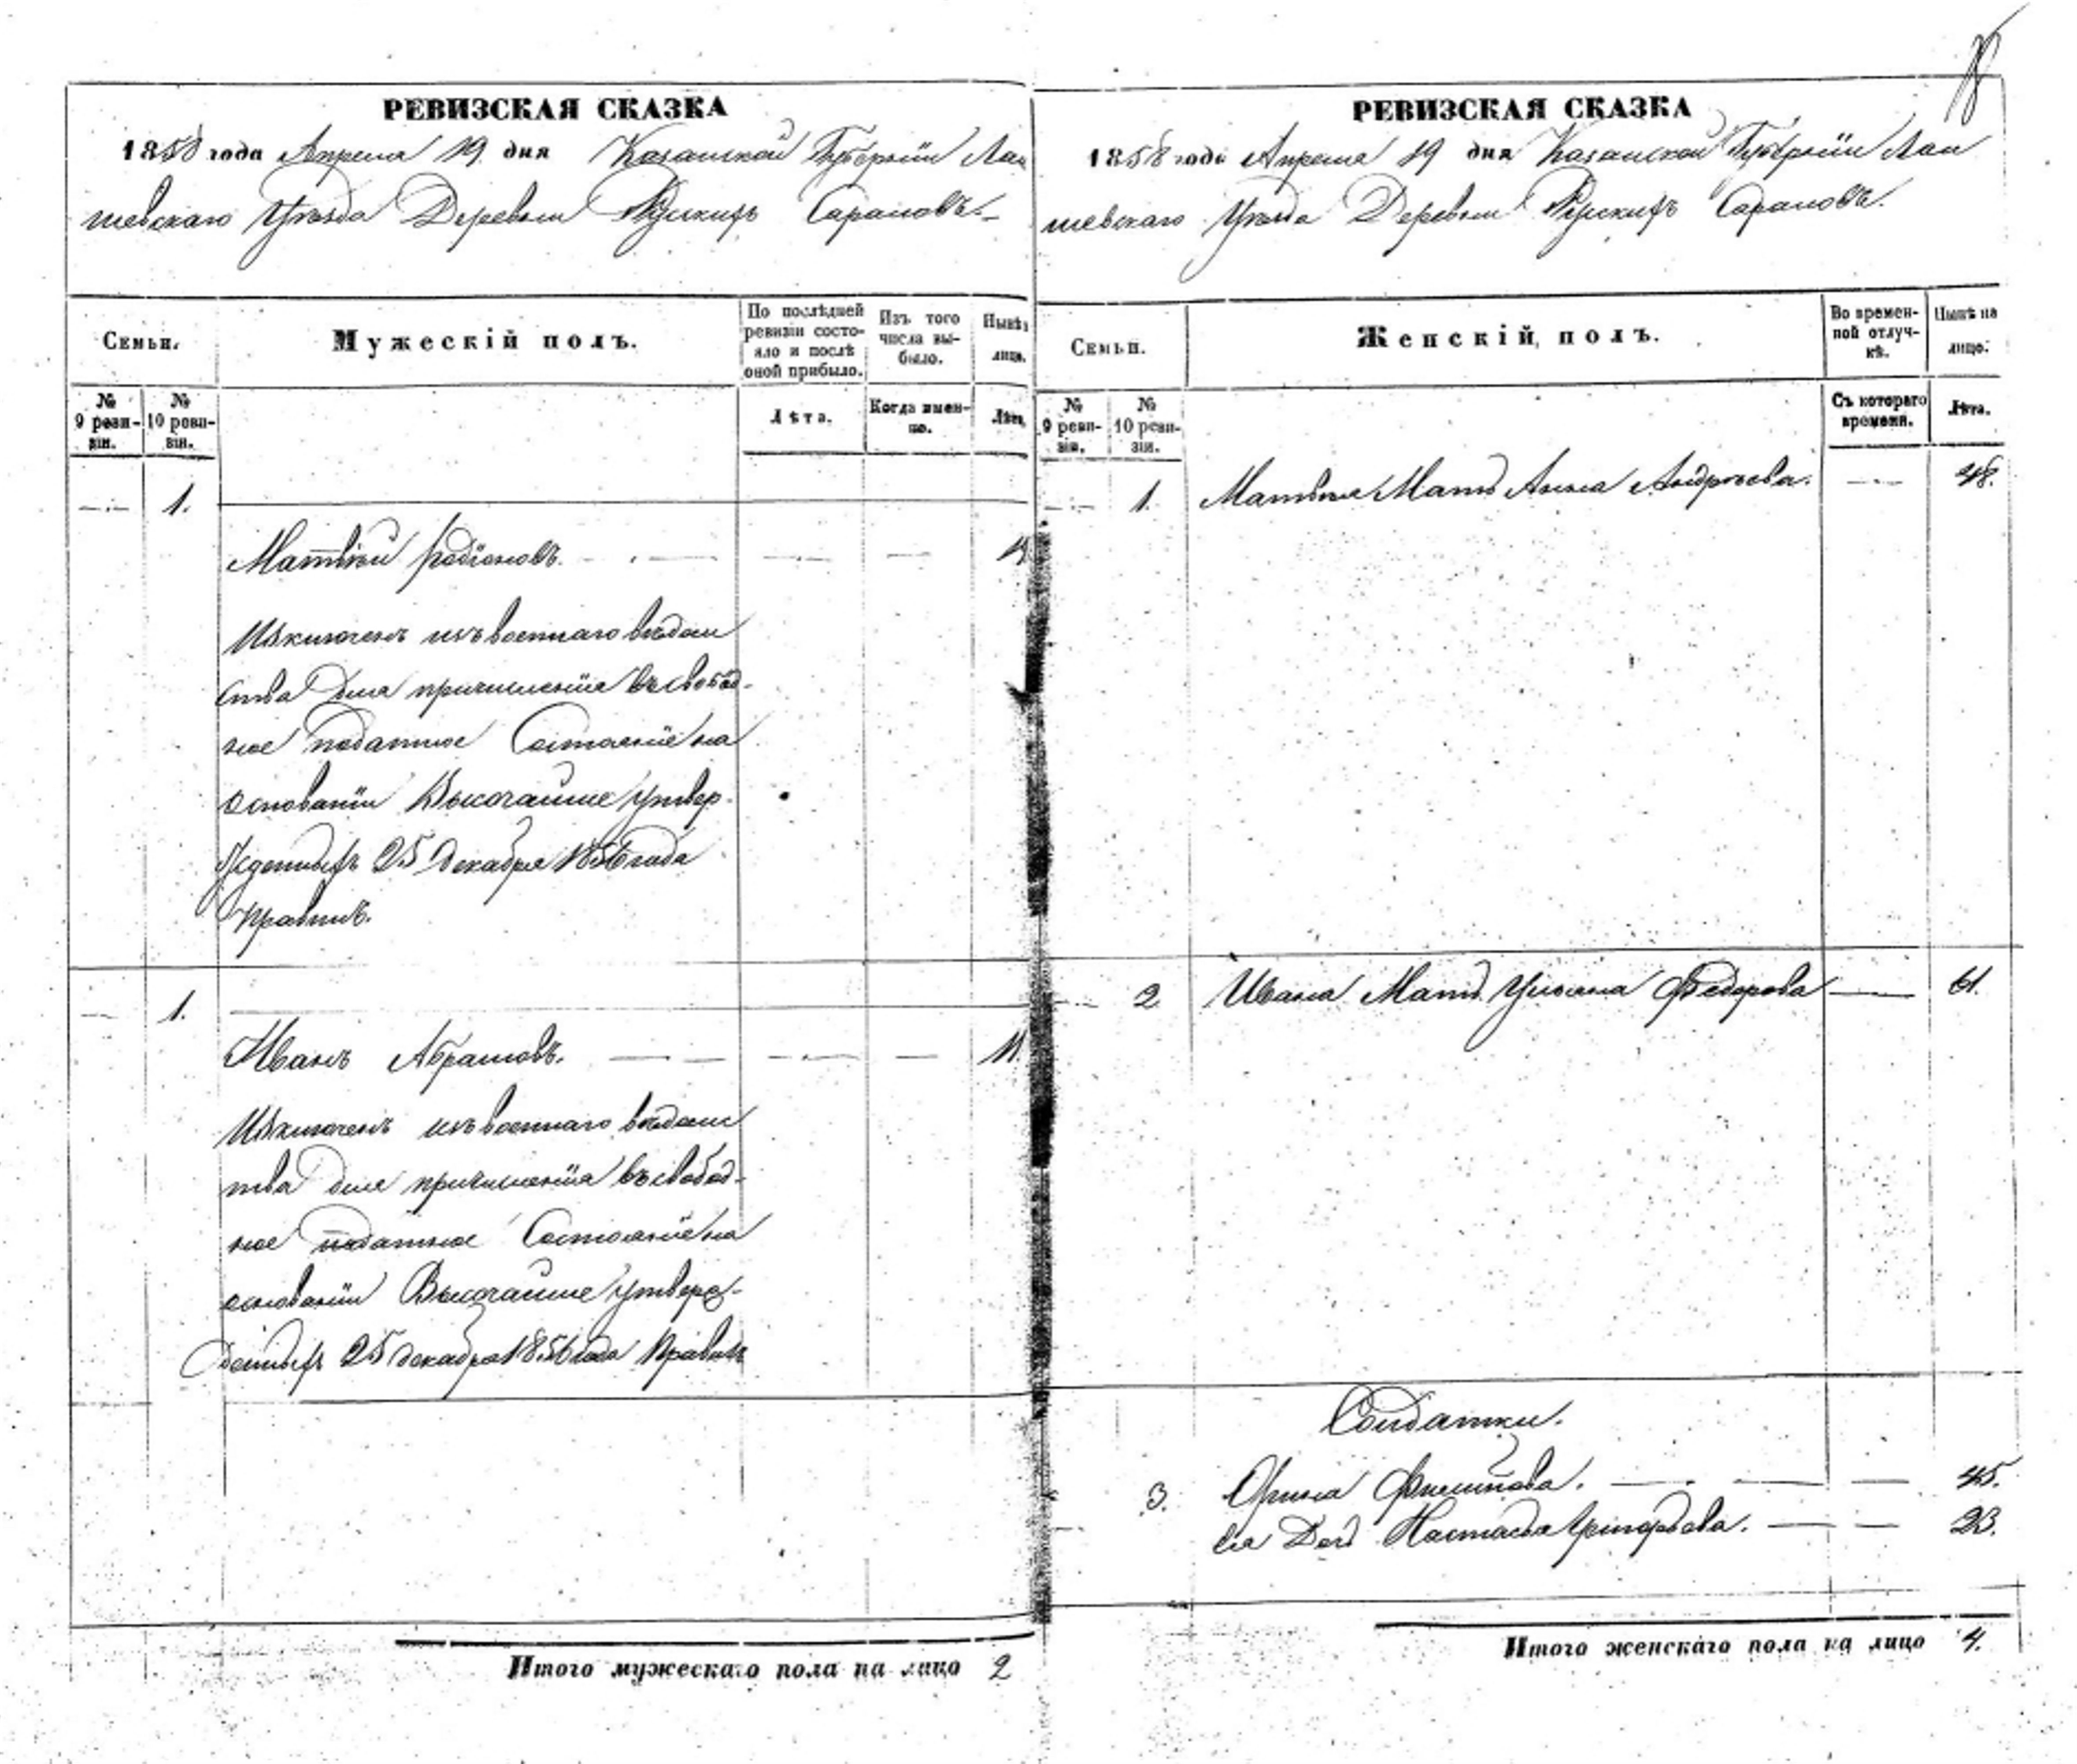 РЕВИЗСКАЯ СКАЗКА
1858 года Апреля 19 дня Казанской Губерніи Лаи
шевскаго Уѣзда Деревни Рускихъ Сараловъ
Семьи.
Мужескій полъ.
По послѣдней ревизіи состояло и послѣ оной прибыло.
Изъ того числа выбыло.
Нынѣ
лицо.
№ 9 ревизіи.
№ 10 ревизіи.
Лѣта.
Когда именно.
Лѣта.
1.
Матвѣй Родіоновъ.
Изключенъ изъ военнаго вѣдом
ства для причисленія въ свобод-
ное податное Состояніе на
основаніи Высочайше утвер-
жденныхъ 25 Декабря 1856 года
правилъ.
1.
Иванъ Абрамовъ. 11.
Изключенъ изъ военнаго вѣдомс
тва для причисленія въ свобод-
ное податное Состояніе на
основаніи Высочайше утверж-
денныхъ 25 декабря 1856 года правилъ
Итого мужескаго пола на лицо 2
РЕВИЗСКАЯ СКАЗКА
1858 года Апреля 19 дня Казанской Губерніи Лаи
шевскаго Уѣзда Деревни Рускихъ Сараловъ.
Семьи.
Женскій полъ.
Во временной отлучкѣ.
Нынѣ на лицо.
№ 9 ревизіи.
№ 10 ревизіи.
Съ котораго времени.
Лѣта.
1. Матвѣя Мать Анна Андреева. 48.
2 Ивана Мать Ульяна Федорова 61.
Солдатки.
3. Орина Филипова. 45.
ея Дочь Настасья Григорьева. 23.
Итого женскаго пола на лицо 4.